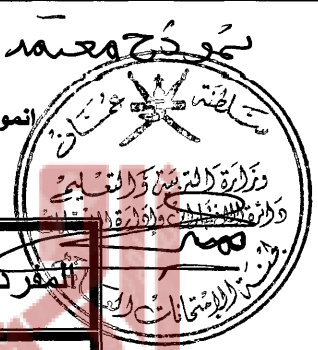 نموذج معتمد
انمو
سلطنة عمان
وزارة التربية والتعليم
دائرة
لجنة الامتحانات
المفرد